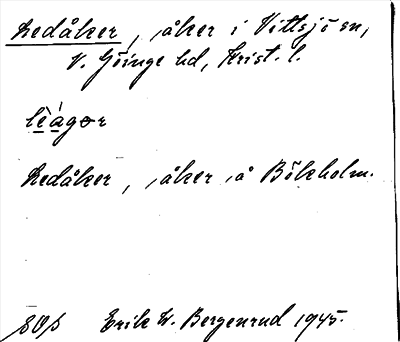 Ledåker, åker i Vittsjö sn,
V. Göinge hd, Krist. l.
lèágər
Ledåker, åker å Bökholm.
Erik W. Bergenrud 1945.